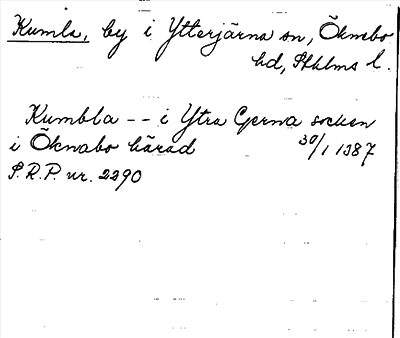 Kumla, by i Ytterjärna sn, Öknebo
hd, Sthlms l.
Kumbla -- i Ytra Gerna socken
i Öknabo härad 30/1 1387
S.R.P. nr. 2290